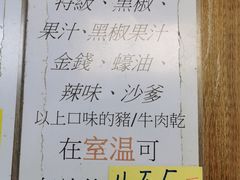 特級、黑椒、
果汁、黑椒果汁
金錢、蠔油、
辣味、沙爹
以上口味的豬/牛肉乾
在室温可